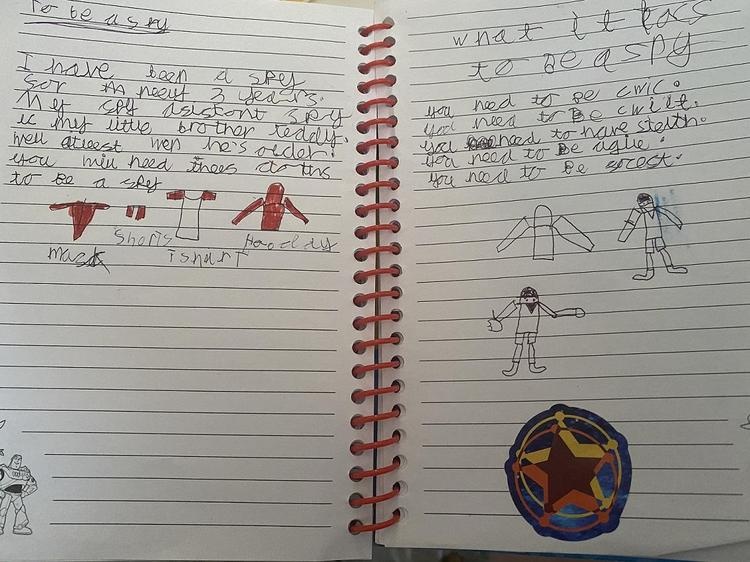 To be a spy
I have been a spy
for neerly 3 years.
My spy asistont spy
is my little brother teddy.
well atleest wen he's older!
you will need thees cloths
to be a spy
mask
Shorts
Tshurt
Hooddy
What it tacs
to Be a spy
you need to be cwic.
you need to Be cwiit.
you need to have stelth.
you need to Be agile.
you need to Be